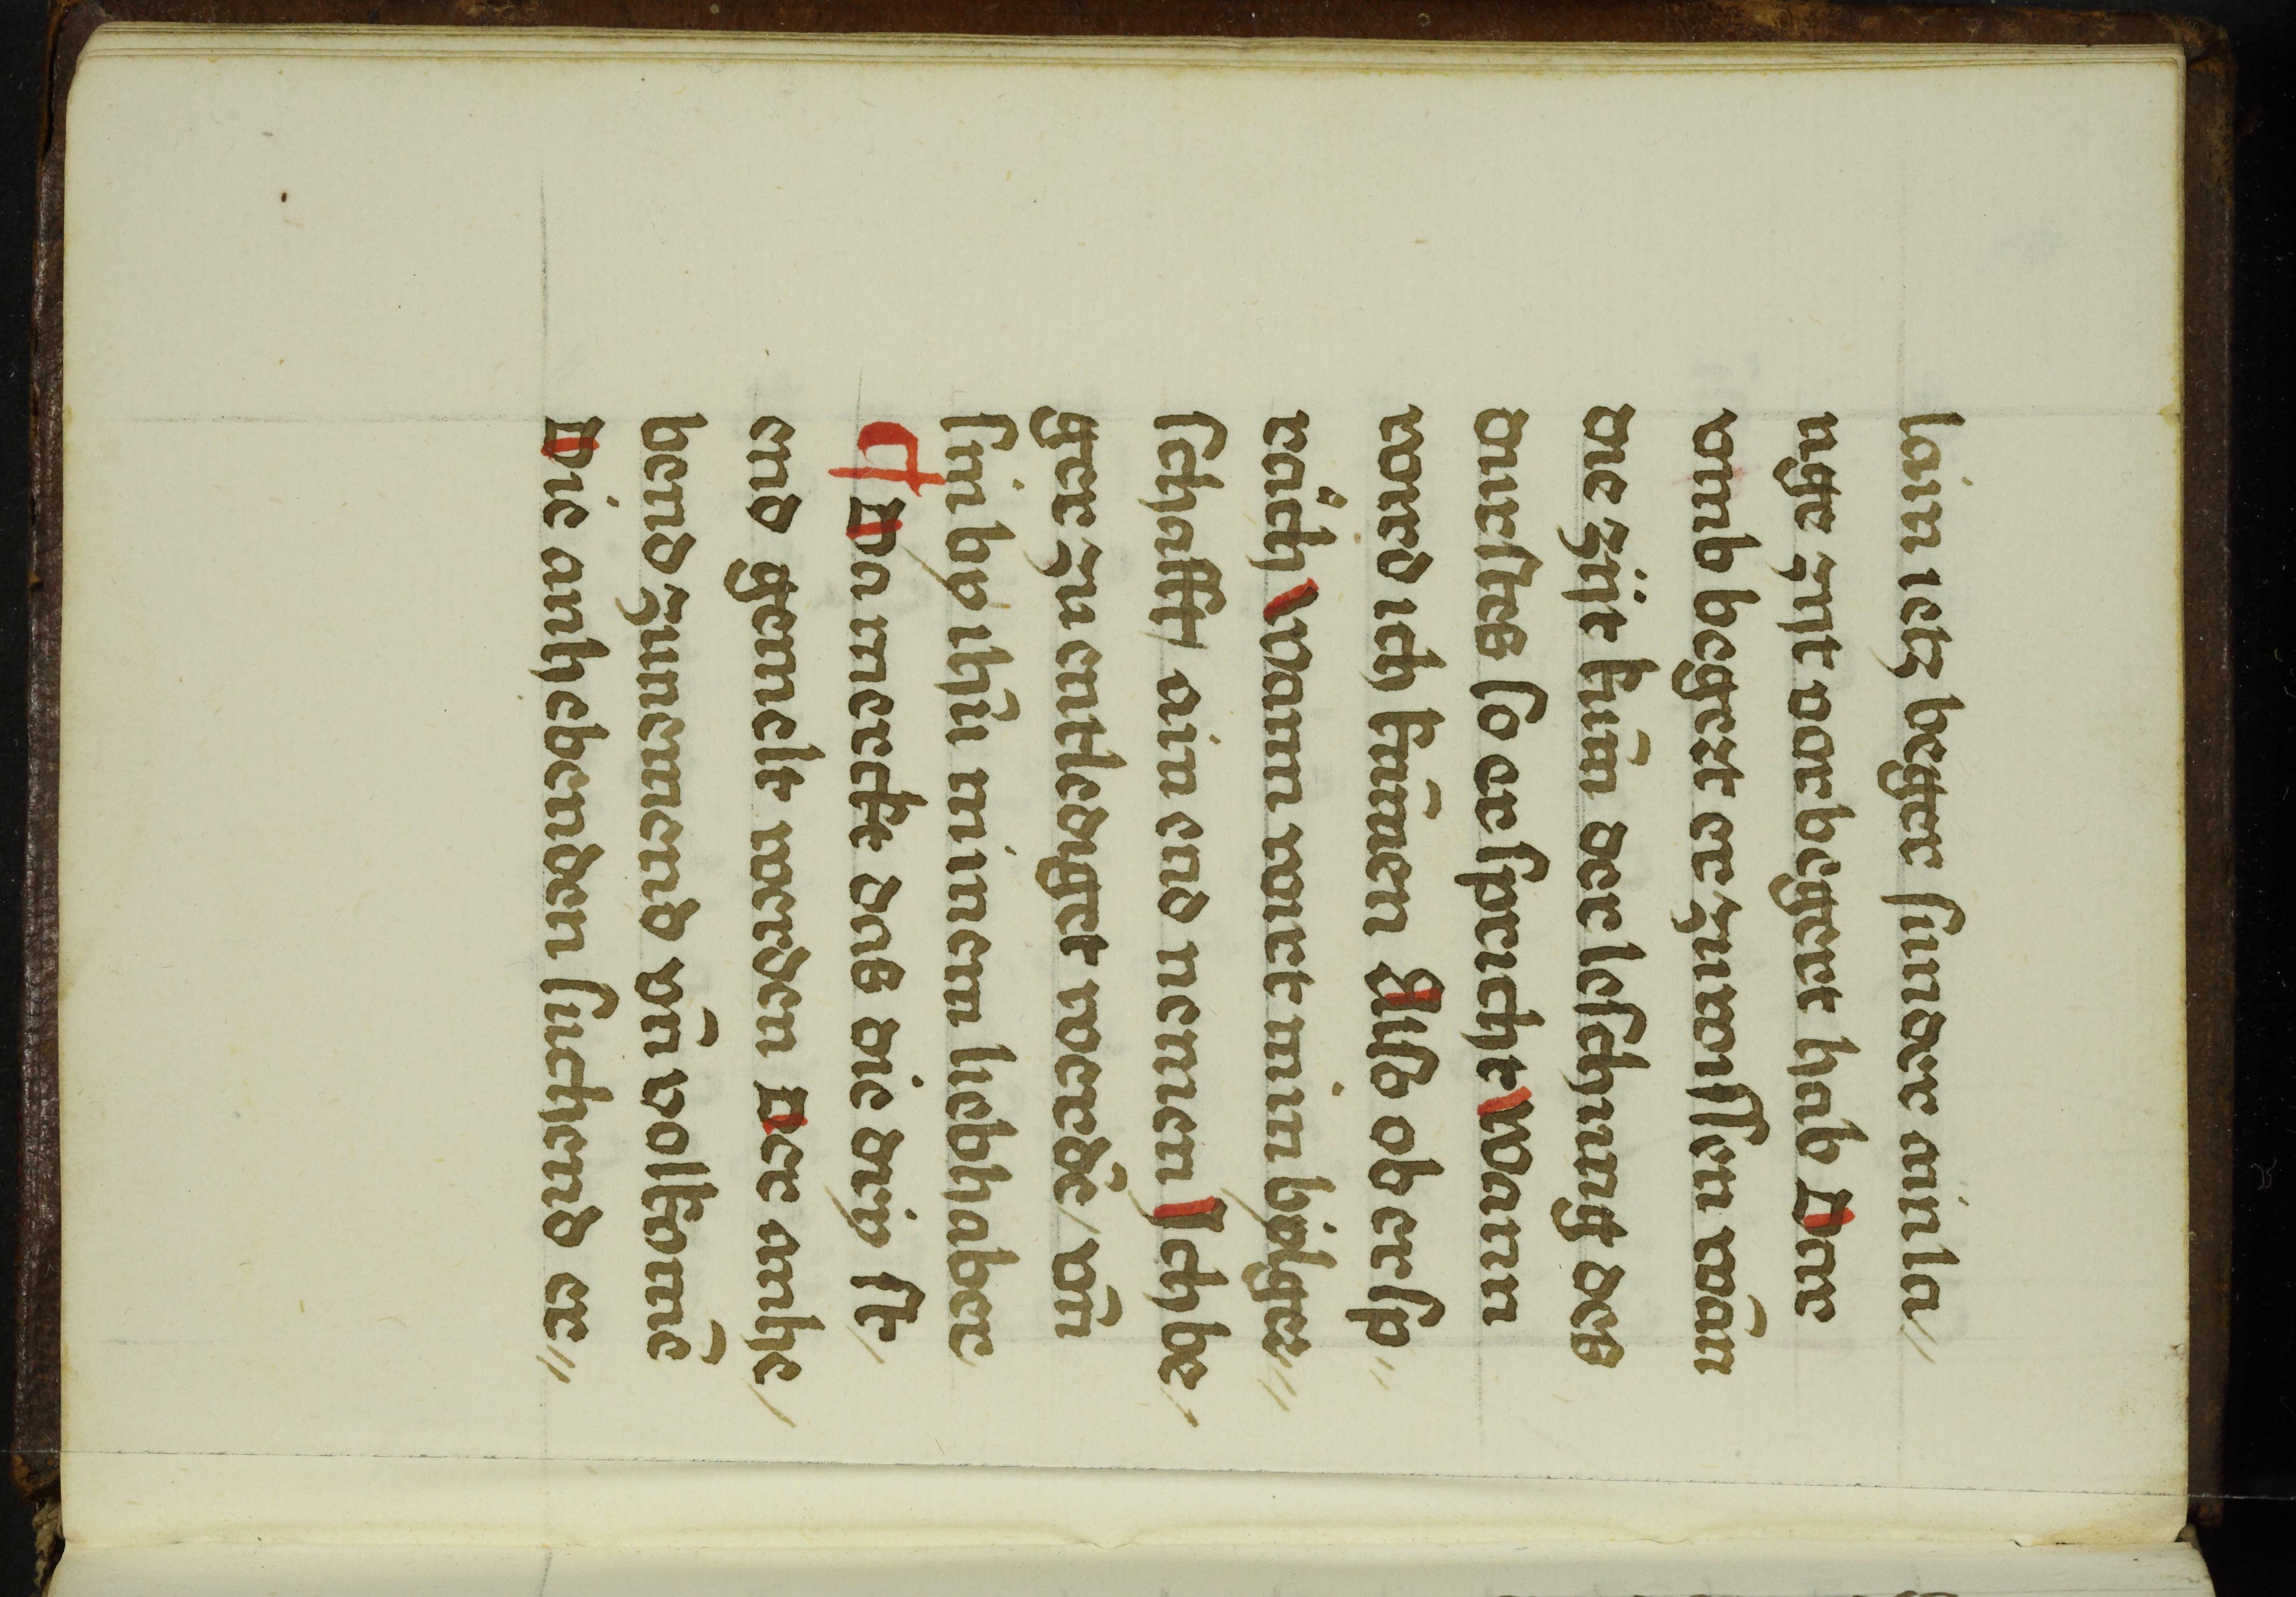 lain ietz beger sunder ainla//
nge zijt vor begert hab Dar
vmb begert er zuwissen wan̄
die zijt kum̄ der leschung des
durstes so er spricht Wann
wird ich kum̄en Also ob er sp//
räch Wann wirt min bilger//
schafft / ain end nemen Ich be/
ger zu entlediget werdē / vn̄
sin by ihū minem liebhaber
¶ Da merck das die driy st/
end gemelt werden Der anhe/
bend zunemend vn̄ volkom̄e
Die anhebenden suchend er//